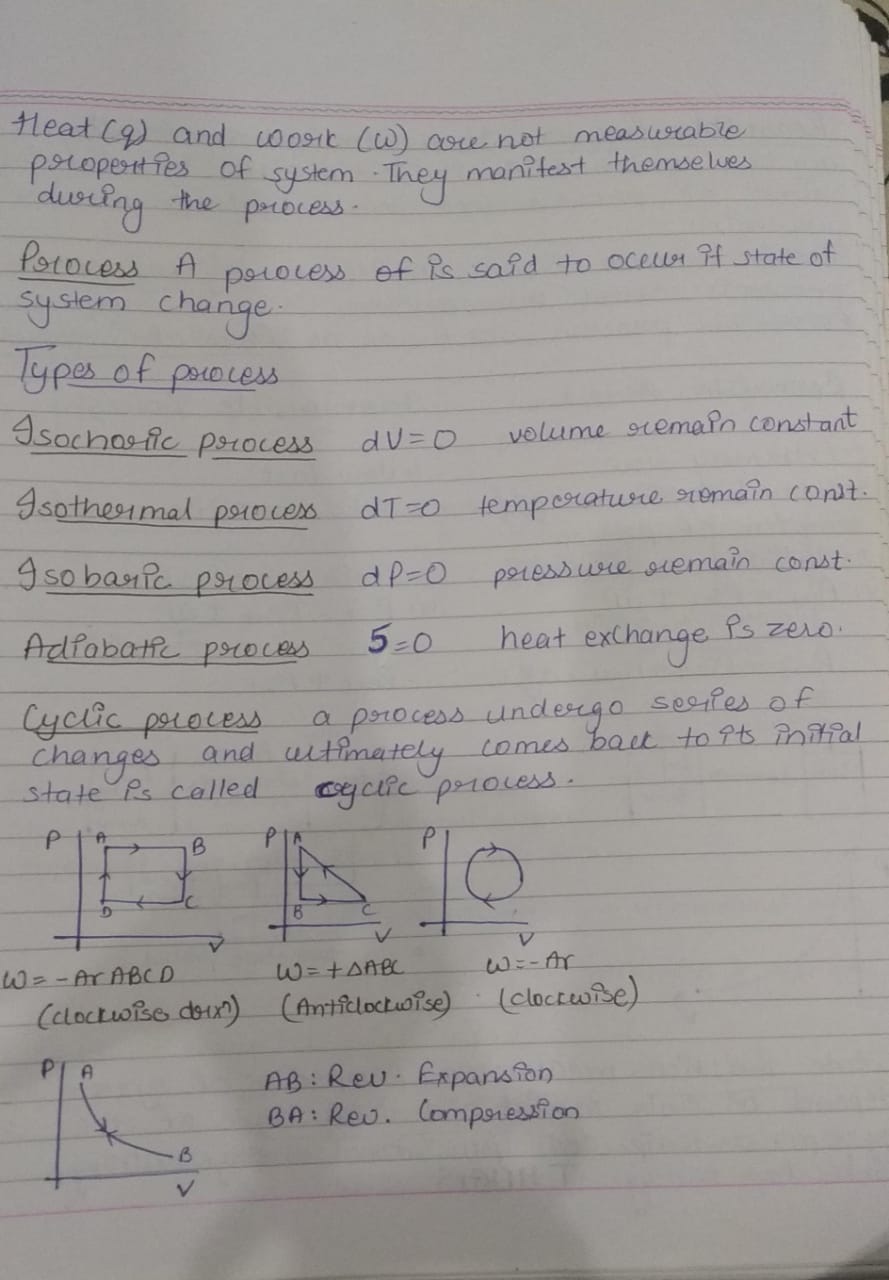 Heat (q) and work (w) are not measurable
properties of system. They manifest themselves
during the process.
Process A process of is said to occur if state of
system change.
Types of process
Isochoric process dV=0 volume remain constant
Isothermal process dT=0 temperature remain const.
Isobaric process dP=0 pressure remain const.
Adiabatic process 5=0 heat exchange is zero.
Cyclic process a process undergo series of
changes and ultimately comes back to its initial
state is called cyclic process.
P A B P A P
D C B C
V V V
W = -Ar ABCD W = +ΔABC W = -Ar
(clockwise dirxn) (Anticlockwise) (clockwise)
P A AB: Rev. Expansion
BA: Rev. Compression
B
V